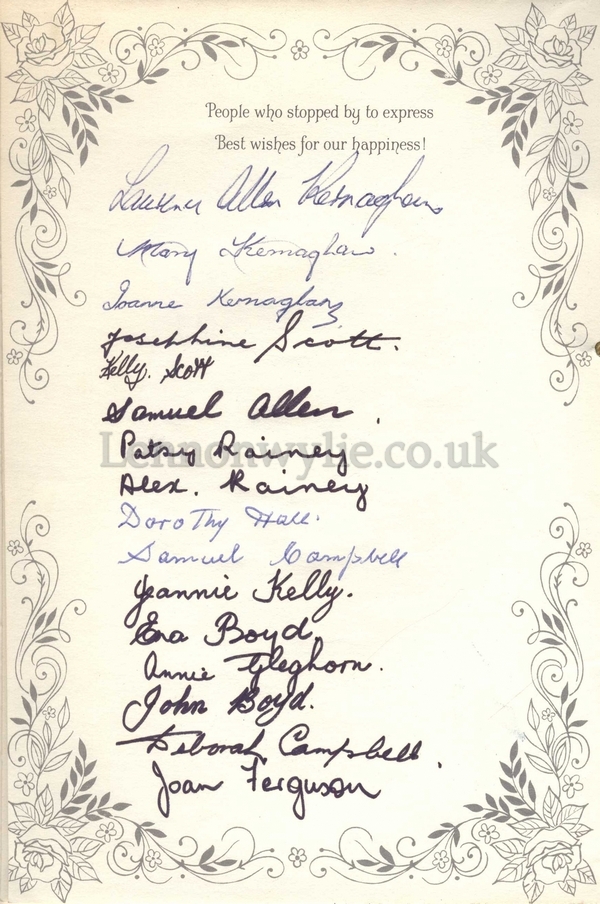 People who stopped by to express
Best wishes for our happiness!
Laurence Allen Kernaghan
Mary Kernaghan.
Joanne Kernaghan
Josephine Scott.
Kelly. Scott
Samuel Allen.
Patsy Rainey
Lennonwylie.co.uk
Alex. Rainey
Dorothy Hall.
Samuel Campbell
Jeannie Kelly.
Boyd.
Annie Gleghorn.
John Boyd.
Deborah Campbell.
Joan Ferguson